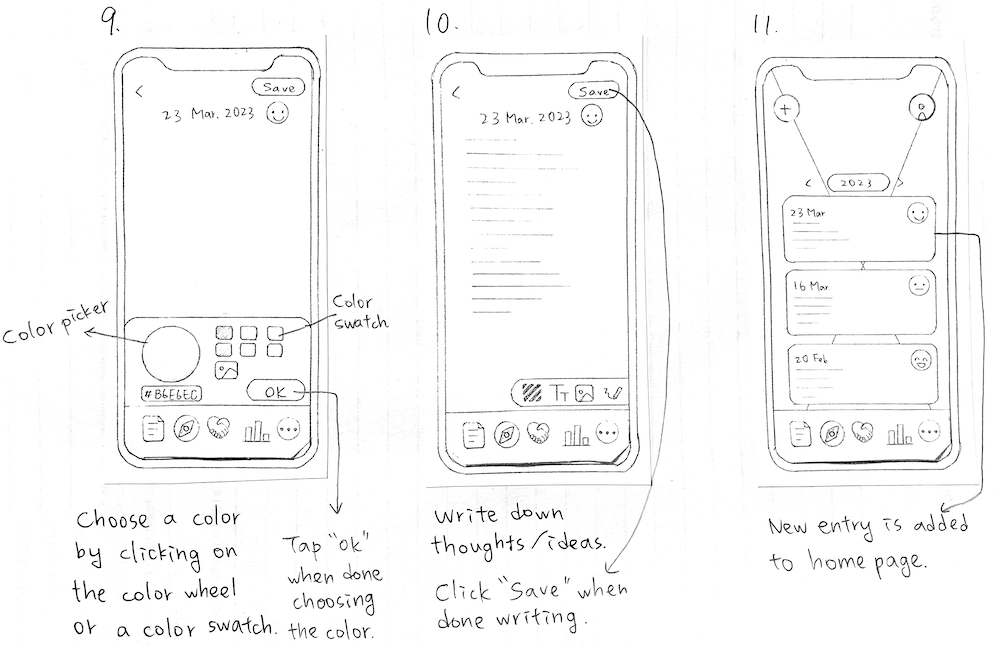 9.
Save
23 Mar. 2023
Color picker
Color
swatch
#B6E6EC
OK
Choose a color
by clicking on
the color wheel
or a color swatch.
Tap "ok"
when done
choosing
the color.
10.
Save
23 Mar. 2023
TT
Write down
thoughts/ideas.
Click "Save" when
done writing.
11.
2023
23 Mar
16 Mar
20 Feb
New entry is added
to home page.